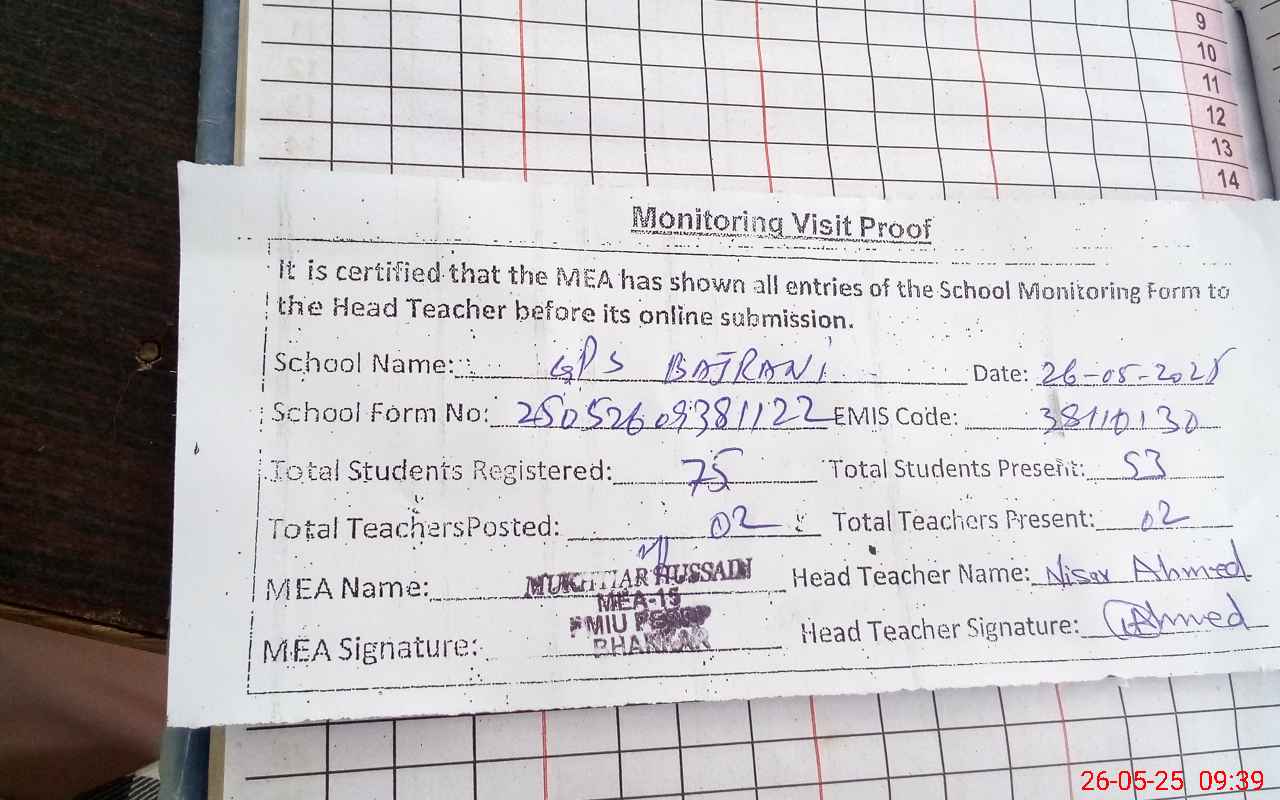 9
10
11
12
13
14
Monitoring Visit Proof
It is certified that the MEA has shown all entries of the School Monitoring Form to
the Head Teacher before its online submission.
School Name: GPS BAJRANI Date: 26-05-2025
School Form No: 25052609381122 EMIS Code: 38110130
Total Students Registered: 75 Total Students Present: 53
Total TeachersPosted: 02 Total Teachers Present: 02
MEA Name: MUKHTIAR HUSSAIN Head Teacher Name: Nisar Ahmed
MEA-15
PMIU
BHAKKAR
MEA Signature: Head Teacher Signature: Ahmed
26-05-25 09:39